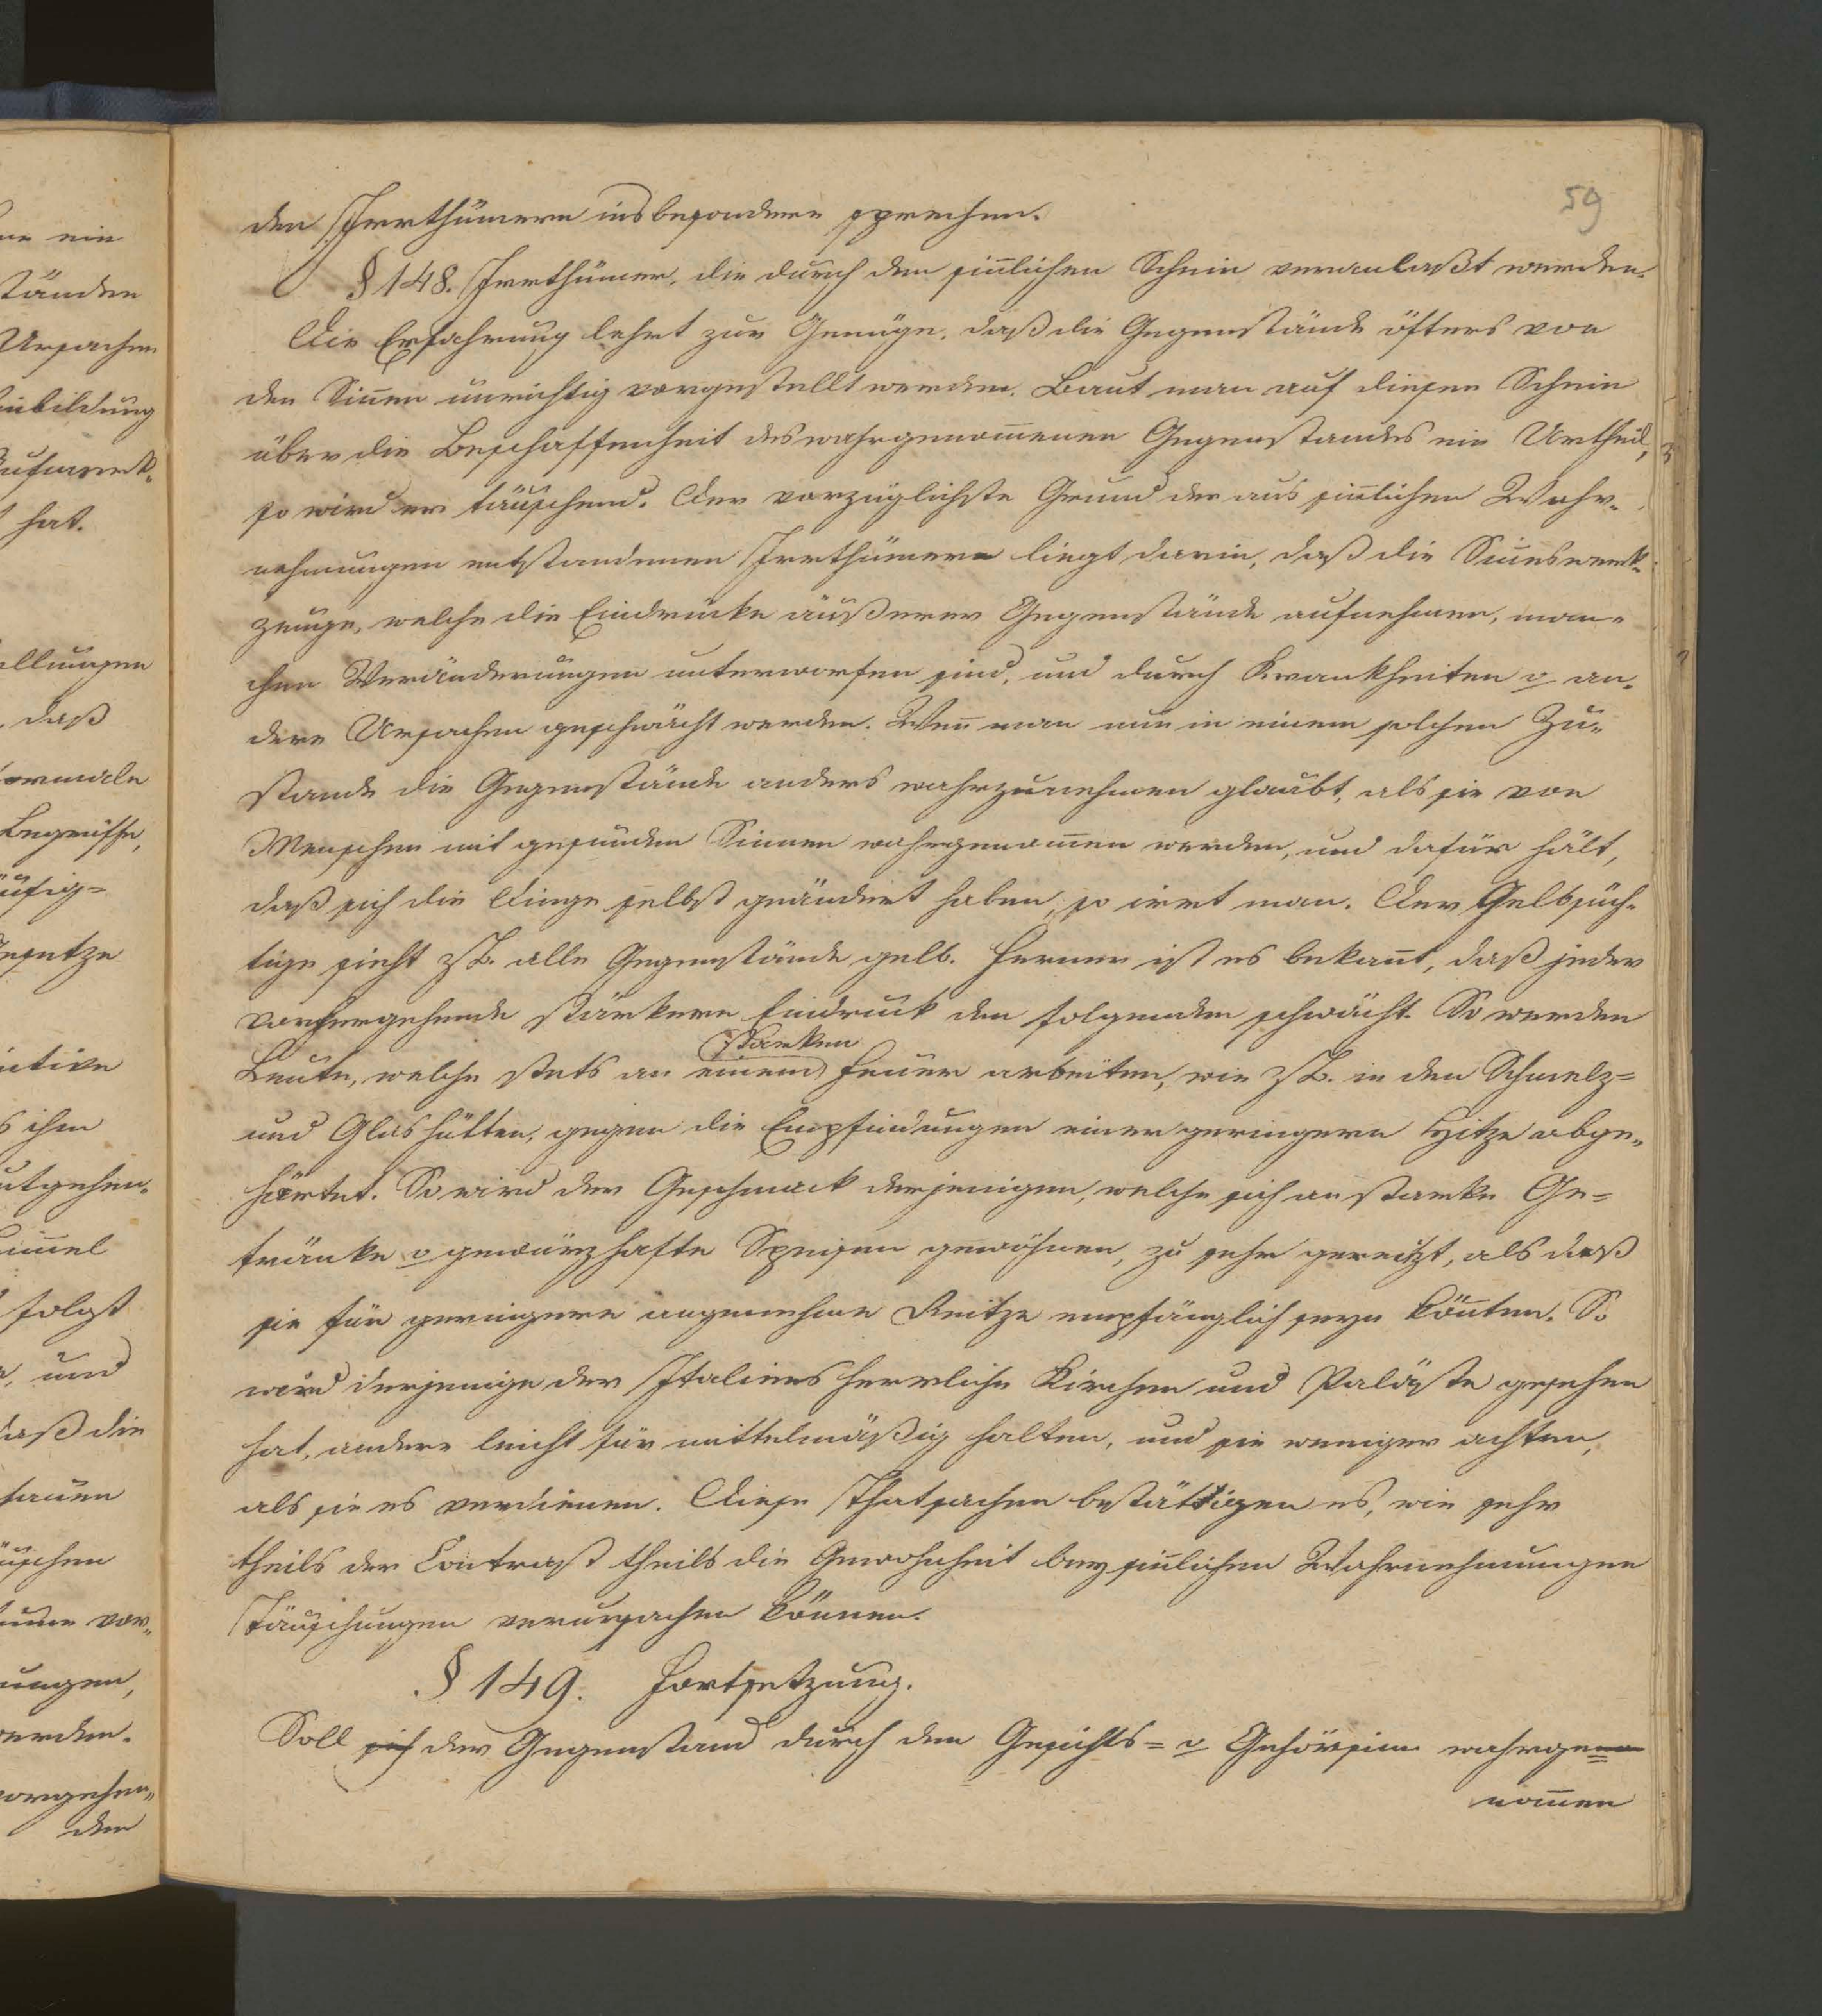 59
den Irrthümern insbesondere sprechen.
§ 148. Irrthümer, die durch den sinlichen Schein veranlaßt werden.
Die Erfahrung lehrt zur Genüge, daß die Gegenstände öfters von
den Sinen unrichtig vorgestellt werden. Baut man auf diesen Schein
über die Beschaffenheit des wahrgenomenen Gegenstandes ein Urtheil,
so wird er täuschend. Der vorzüglichste Grund der aus sinlichen Wahr-
nehmungen entstandenen Irrthümern liegt darin, daß die Sineswerk-
zeuge, welche die Eindrücke äußerer Gegenstände aufnehmen, man-
chen Veränderungen unterworfen sind, und durch Krankheiten u an-
dere Ursachen geschwächt werden. Wen man nun in einem solchen Zu-
stande die Gegenstände anders wahrzunehmen glaubt, als sie von
Menschen mit gesunden Sinnen wahrgenomen werden, und dafür hält,
daß sich die Dinge selbst geändert haben, so irrt man. Der Gelbsüch-
tige sieht zB. alle Gegenstände gelb. Ferner ist es bekant, daß jeder
vorhergehende stärkere Eindruck den folgenden schwächt. So werden
starken
Leute, welche stets an einem Feuer arbeiten, wie zB. in den Schmelz=
und Glashütten, gegen die Empfindungen einer geringern Hitze abge-
härtet. So wird der Geschmack derjenigen, welche sich an starke Ge=
tränke u gewürzhafte Speisen gewöhnen, zu sehr gereitzt, als daß
sie für geringere angenehme Reitze empfänglich seyn könten. So
wird derjenige der Italiens herrliche Kirchen und Paläste gesehen
hat, andere leicht für mittelmäßig halten, und sie weniger achten,
als sie es verdienen. Diese Thatsachen bestättigen es, wie sehr
theils der Contrast theils die Gewohnheit bey sinlichen Wahrnehmungen
Täuschungen verursachen können.
§ 149. Fortsetzung.
Soll sich der Gegenstand durch den Gesichts= u Gehörsinn wahrge
nomen
ein
ständen
Ursachen
inbildung
ufmerk-
hat.
ellungen
daß
formale
Begriffe,
äufig=
esetze
ihm
utgehen-
folgt
und
daß die
vor-
ungen,
erden.
vorgehen-
den